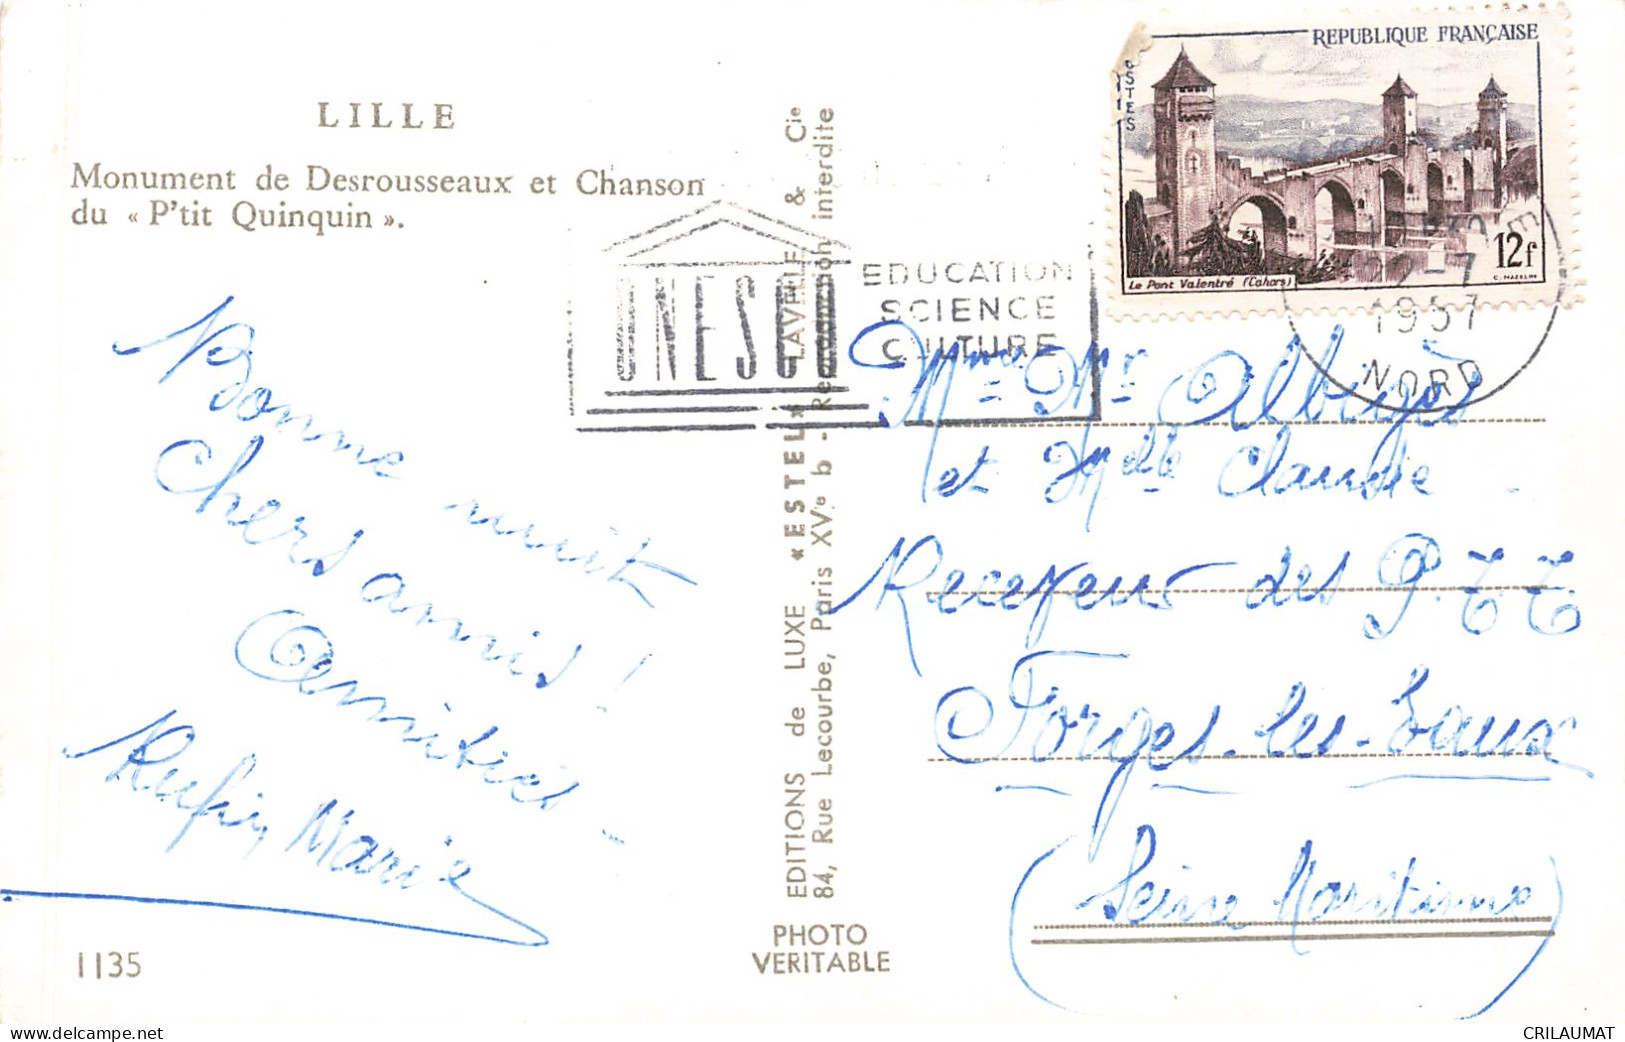 LILLE
Monument de Desrousseaux et Chanson
du « P'tit Quinquin ».
Bonne nuit
Chers amis !
Amitiés -
Rufin Marie
1135
EDITIONS de LUXE « ESTEL » LAVELLE & Cie
84, Rue Lecourbe, Paris XVe b - Reproduction interdite
PHOTO
VERITABLE
UNESCO
EDUCATION
SCIENCE
CULTURE
REPUBLIQUE FRANÇAISE
POSTES
12f
Le Pont Valentré (Cahors)
C. MAZELIN
-7
1957
NORD
Mme Mr Albigès
et Melle Claudie
Receveur des P.T.T.
Forges-les-Eaux
(Seine Maritime)
CRILAUMAT